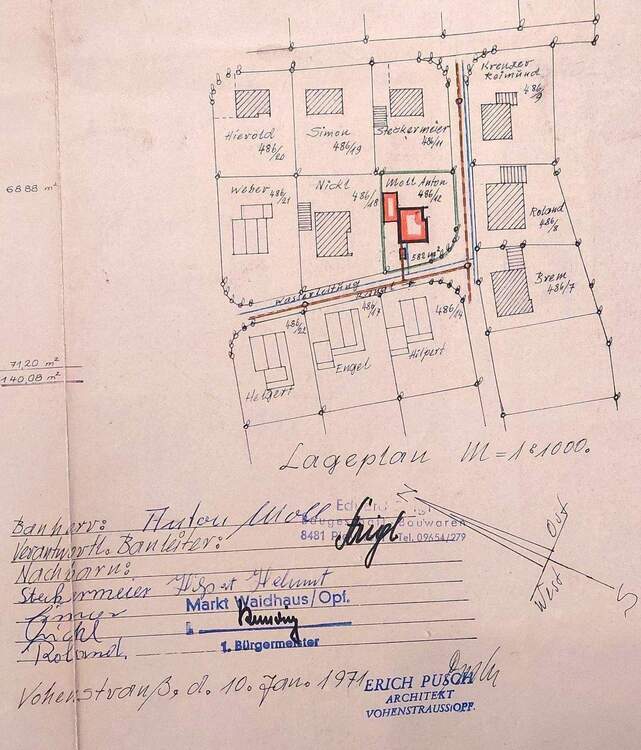 Kreuzer
Reimund
486/9
Hierold
486/20
Simon
486/19
Steckermeier
486/11
68.88 m²
Weber 486/21
Nickl
486/18
Moll Anton
486/12
Roland
486/8
582 m²
Brem
486/7
Wasserleitung
Kanal
486/22
486/13
486/14
71,20 m²
140,08 m²
Helgert
Engel
Hilpert
Lageplan M = 1:1000.
N
Bauherr: Anton Moll
Baugeschäft Bauwaren
Verantwortl. Bauleiter:
8481
Tel. 09654/279
Ost
Nachbarn:
West
S
Steckermeier
Markt Waidhaus/Opf.
Roland
1. Bürgermeister
Vohenstrauß, d. 10. Jan. 1971
ERICH PUSCH
ARCHITEKT
VOHENSTRAUSS/OPF.